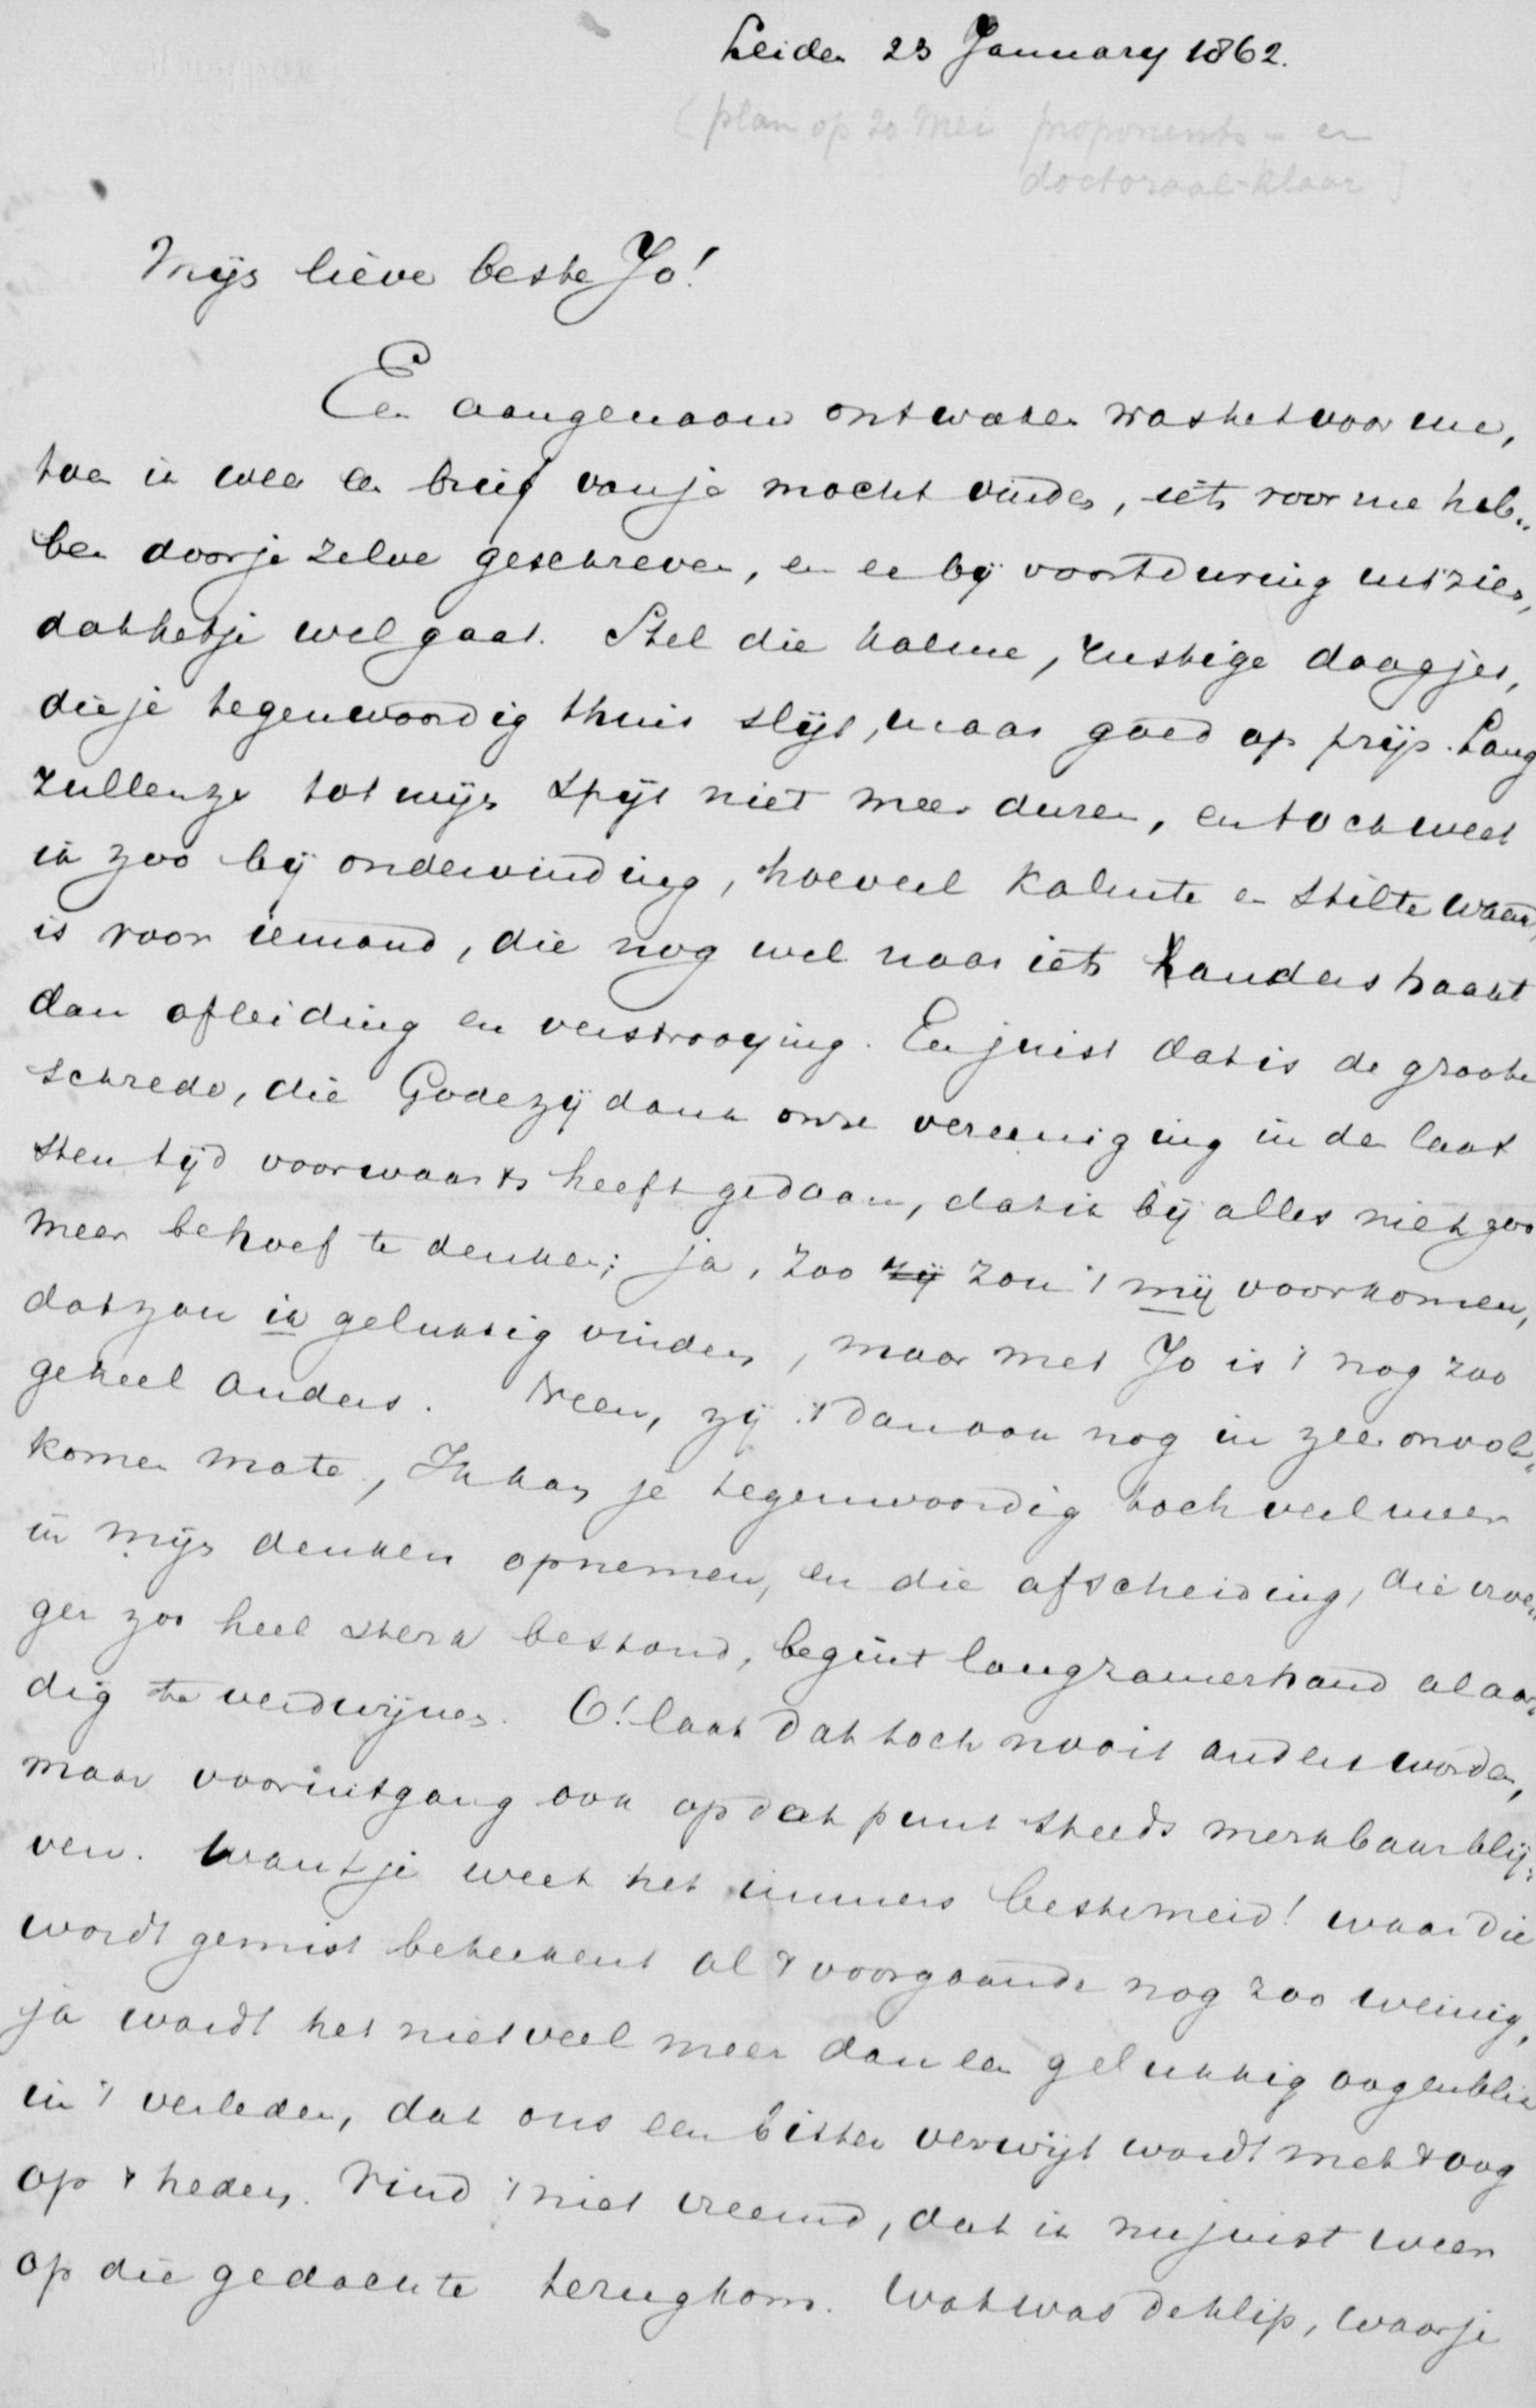 Leiden 23 January 1862.
(plan op 20 Mei proponents- en
doctoraal-klaar)
Mijn lieve beste Jo!
Een aangenaam ontwaken was het voor me,
toen ik weer een brief van je mocht vinden, iets voor me heb„
ben door je zelve geschreven, en er bij voortduring uit zien,
dat het je wel gaat. Stel die kalme, rustige daagjes,
die je tegenwoordig thuis slijt, maar goed op prijs. Lang
zullen ze tot mijn spijt niet meer duren, en toch weet
ik zoo bij ondervinding, hoeveel kalmte en stilte waard
is voor iemand, die nog wel naar iets anders haakt
dan afleiding en verstrooying. En juist dat is de groote
schrede, die Gode zij dank onze vereeniging in den laat
sten tijd voorwaarts heeft gedaan, dat ik bij alles niet zoo
meer behoef te denken; ja, zoo zij zou 't mij voorkomen,
dat zou ik gelukkig vinden, maar met Jo is 't nog zoo
geheel anders. Neen, zij 't dan ook nog in zeer onvol„
komen mate, Ik kan je tegenwoordig toch veel meer
in mijn denken opnemen, en die afscheiding, die vroe„
ger zoo heel sterk bestond, begint langzamerhand al aar„
dig te verdwijnen. O! laat dat toch nooit anders worden,
maar vooruitgang ook op dat punt steeds merkbaar blij„
ven. Want je weet het immers beste meid! waar die
wordt gemist beteekent al 't voorgaande nog zoo weinig,
ja wordt het niet veel meer dan een gelukkig oogenblik
in 't verleden, dat ons een bitter verwijt wordt met 't oog
op 't heden. Vind 't niet vreemd, dat ik nu juist weer
op die gedachte terugkom. Wat was de klip, waar je